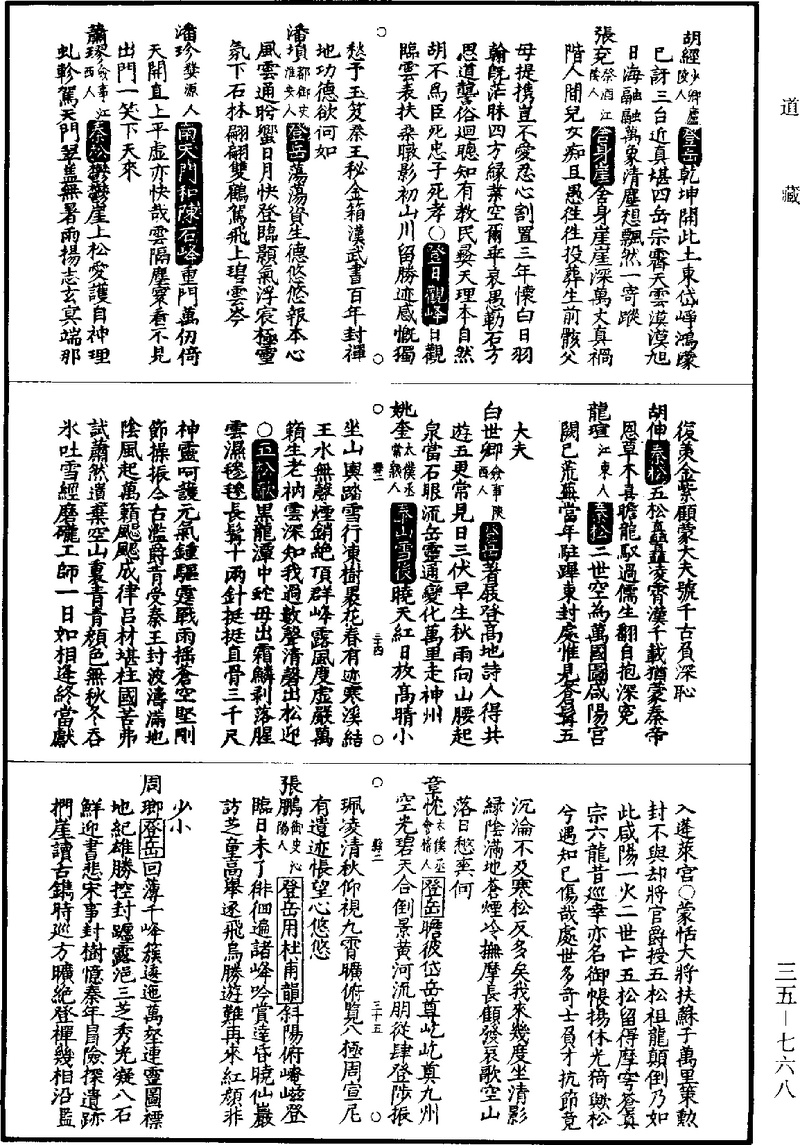 道藏
胡經少卿廬陵人登岳乾坤開此土東岱崢鴻濛
已訝三台近真堪四岳宗霽天雲漠漠旭
日海融融萬象清塵想飄然一寄蹤
張克祭酒江陵人舍身崖舍身崖崖深萬丈真禍
階人間兒女痴且愚徃徃投葬生前骸父
母提携豈不愛忍心割置三年懷白日羽
翰旣茫昧四方緑業空爾乖哀愚勒石方
思道聾俗迴聰知有教民彝天理本自然
胡不爲臣死忠子死孝○登日觀峰日觀
臨雲表扶桑暾影初山川留勝迹感慨獨
愁予玉笈秦王秘金箱漢武書百年封禪
地功德欲何如
潘塤都御史淮安人登岳蕩蕩資生德悠悠報本心
風雲通肹蠁日月快登臨顥氣浮宸極靈
氛下石林翩翩雙鶴駕飛上碧雲岑
潘珍婺源人南天門和陳石峰重門萬仞倚
天開直上平虚亦快哉雲隔塵寰看不見
出門一笑下天來
蕭璆僉事江西人秦松欝欝崖上松愛護自神理
虬軫駕天門翠蓋無暑雨楊志玄寞端那
復羨金紫顧蒙大夫號千古負深恥
胡伸秦松五松矗矗凌霄漢千載猶蒙秦帝
恩草木喜瞻龍馭過儒生翻自抱深寃
龍瑄江東人秦松二世空為萬國圖咸陽宮
闕已荒蕪當年駐蹕東封處惟見蒼髯五
大夫
白世卿僉事陝西人登岳著屐登高地詩人得共
遊五更常見日三伏早生秋雨向山腰起
泉當石眼流岳靈通變化萬里走神州
姚奎太僕丞常熟人泰山雪張曉天紅日放高晴小
坐山輿踏雪行凍樹裹花春有迹寒溪結
玉水無聲煙銷絶頂群峰露風度虚嚴萬
籟生老衲雲深知我過數聲清磬出松迎
○五松歌黑龍潭中蛇母出霜鱗剥落腥
雲濕毿毿長髯十兩針挺挺直骨三千尺
神靈呵護元氣鍾驅霆戰雨搖蒼空堅剛
節操振今古濫爵肯受秦王封波濤滿地
陰風起萬籟颼颼成律吕材堪柱國苦弗
試蕭然遺棄空山裏青青顔色無秋冬吞
氷吐雪經磨礲工師一日如相逢終當獻
入蓬萊宫○蒙恬大將扶蘇子萬里策勲
封不與却將官爵授五松祖龍顛倒乃如
此咸陽一火二世亡五松留得摩穹蒼真
宗六龍昔巡幸亦名御帳揚休光猗歟松
兮遇知已傷哉處世多奇士負才抗節竟
沉淪不及寒松反多矣我來幾度坐清影
緑陰滿地蒼煙冷撫摩長顧發哀歌空山
落日愁柰何
章忱太僕丞會稽人登岳瞻彼岱岳尊屹屹奠九州
空光碧天合倒景黄河流朋從肆登陟振
珮凌清秋仰視九霄曠俯覽八極周宣尼
有遺迹悵望心悠悠
張鵬御史沁陽人登岳用杜甫韻斜陽俯崦嵫登
臨日未了徘徊遍諸峰吟賞達昏曉仙巖
訪芝童高舉逐飛鳥勝遊難再來紅顔非
少小
周瑯登岳回薄千峰簇逶迤萬壑連靈圖標
地紀雄勝控封躔露浥三芝秀光凝八石
鮮迎書悲宋事封樹憶秦年冒險探遺跡
捫崖讀古鐫時巡方曠絶登禪幾相沿監
三五－七六八